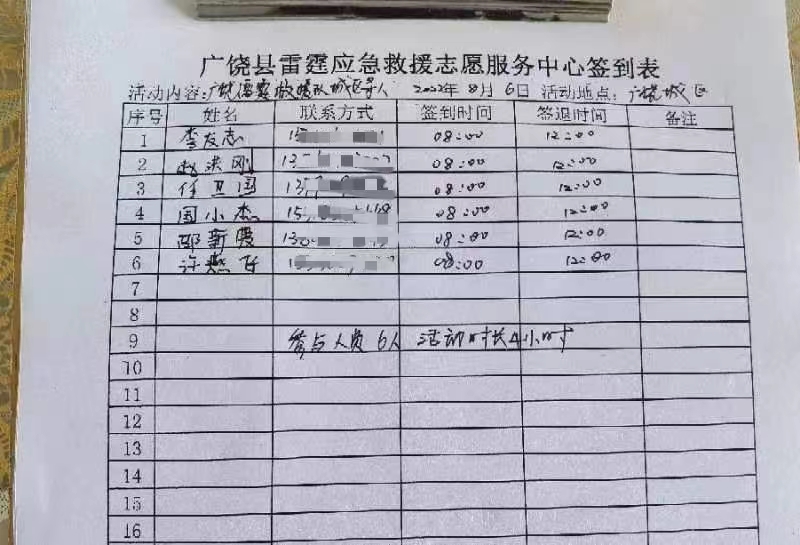 广饶县雷霆应急救援志愿服务中心签到表
活动内容：广饶雷霆救援队城区寻人 2022年8月6日 活动地点：广饶城区
序号 姓名 联系方式 签到时间 签退时间 备注
1 李友志 08:00 12:00
2 赵洪刚 08:00 12:00
3 任卫国 08:00 12:00
4 国小杰 08:00 12:00
5 新霞 08:00 12:00
6 许燕 08:00 12:00
7
8
9 参与人员6人 活动时长4小时
10
11
12
13
14
15
16